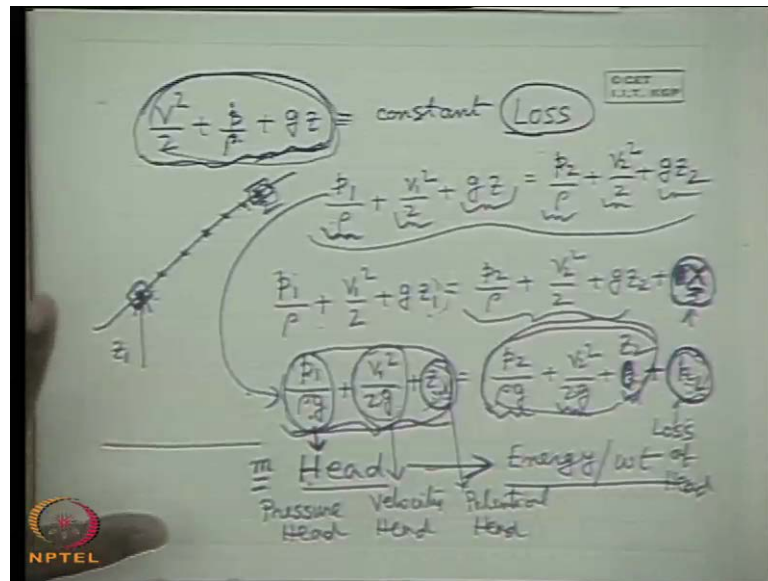 ©CET
I.I.T. KGP
V²/2 + p/ρ + gz = constant Loss
p₁/ρ + V₁²/2 + gz = p₂/ρ + V₂²/2 + gz₂
z₁
p₁/ρ + V₁²/2 + gz₁ = p₂/ρ + V₂²/2 + gz₂ +
p₁/ρg + V₁²/2g + z₁ = p₂/ρg + V₂²/2g + z₂ +
Loss of Head
m Head → Energy/wt
Pressure Head Velocity Head Potential Head
NPTEL